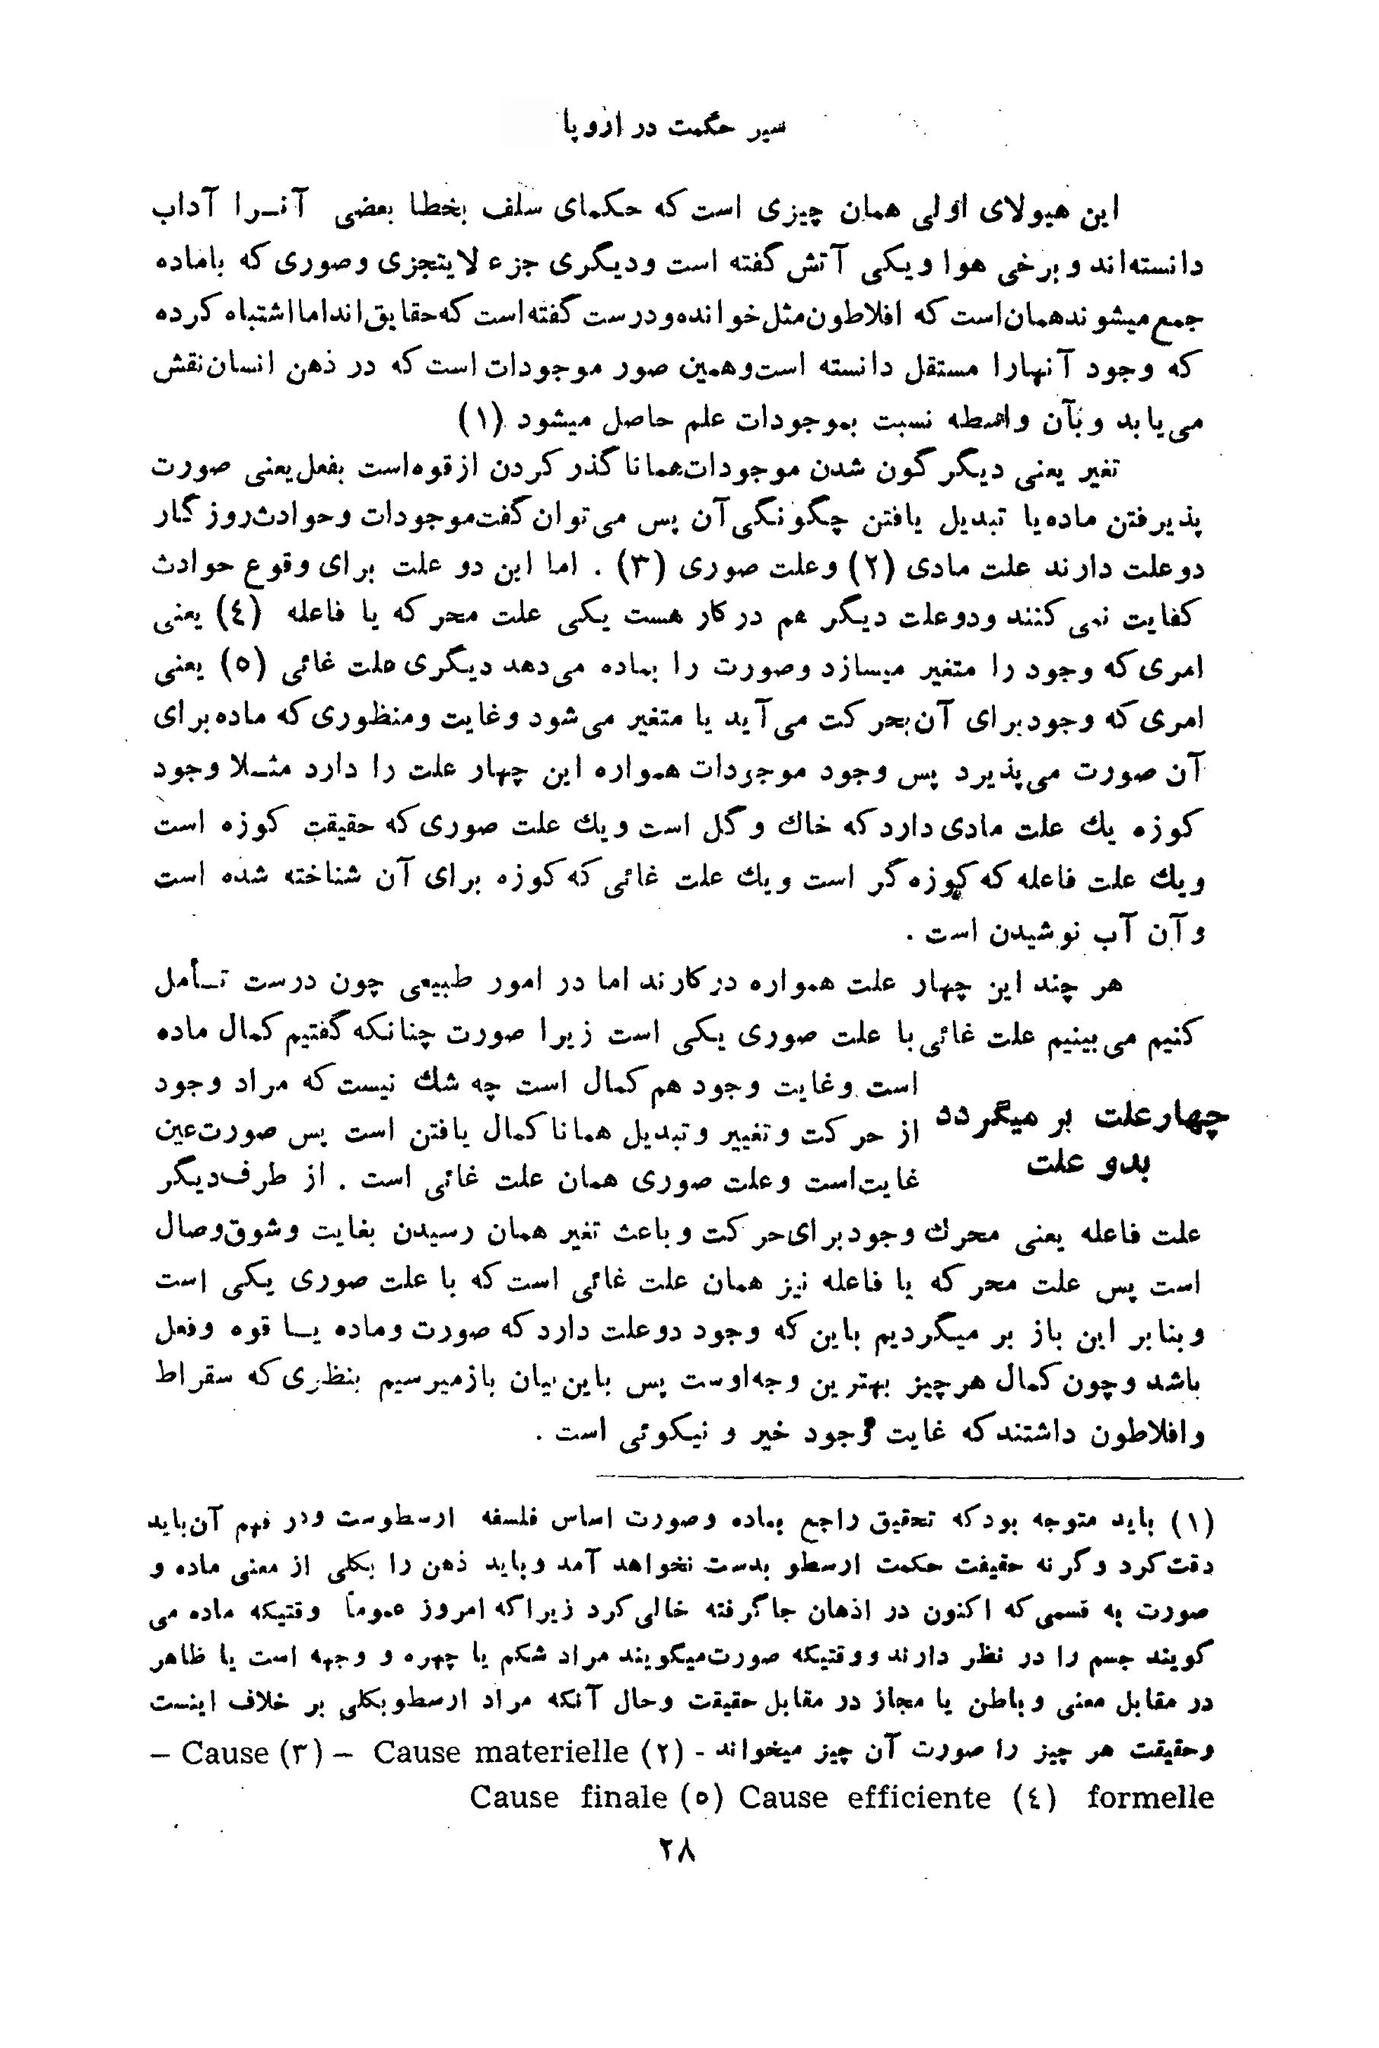 سیر حکمت در اروپا
این هیولای اولی همان چیزی است که حکمای سلف بخطا بعضی آنـرا آداب
دانسته‌اند و برخی هوا ویکی آتش گفته است و دیگری جزء لایتجزی وصوری که باماده
جمع میشوند همان است که افلاطون مثل خوانده و درست گفته است که حقایق‌اند اما اشتباه کرده
که وجود آنهارا مستقل دانسته است وهمین صور موجودات است که در ذهن انسان نقش
می‌یابد و بآن واسطه نسبت بموجودات علم حاصل میشود (۱)
تغیر یعنی دیگر گون شدن موجودات همانا گذر کردن از قوه است بفعل یعنی صورت
پذیرفتن ماده یا تبدیل یافتن چگونگی آن پس می‌توان گفت موجودات وحوادث روز گار
دو علت دارند علت مادی (۲) وعلت صوری (۳) . اما این دو علت برای وقوع حوادث
کفایت نمی کنند ودو علت دیگر هم در کار هست یکی علت محر که یا فاعله (٤) یعنی
امری که وجود را متغیر میسازد وصورت را بماده می‌دهد دیگری علت غائی (٥) یعنی
امری که وجود برای آن بحر کت می‌آید یا متغیر می‌شود وغایت ومنظوری که ماده برای
آن صورت می‌پذیرد پس وجود موجودات همواره این چهار علت را دارد مثـلا وجود
کوزه یك علت مادی دارد که خاك و گل است ویك علت صوری که حقیقت کوزه است
ویك علت فاعله که کوزه گر است ویك علت غائی که کوزه برای آن شناخته شده است
وآن آب نوشیدن است .
هر چند این چهار علت همواره در کارند اما در امور طبیعی چون درست تـأمل
کنیم می‌بینیم علت غائی با علت صوری یکی است زیرا صورت چنانکه گفتیم کمال ماده
است وغایت وجود هم کمال است چه شك نیست که مراد وجود
چهار علت بر میگردد
از حر کت وتغییر وتبدیل همانا کمال یافتن است پس صورت عین
بدو علت
غایت است وعلت صوری همان علت غائی است . از طرف دیگر
علت فاعله یعنی محرك وجود برای حر کت وباعث تغیر همان رسیدن بغایت وشوق وصال
است پس علت محر که یا فاعله نیز همان علت غائی است که با علت صوری یکی است
وبنابر این باز بر میگردیم باین که وجود دو علت دارد که صورت وماده یـا قوه وفعل
باشد وچون کمال هر چیز بهترین وجه اوست پس باین بیان باز میرسیم بنظری که سقراط
وافلاطون داشتند که غایت وجود خیر و نیکوئی است .
(۱) باید متوجه بود که تحقیق راجع بماده وصورت اساس فلسفه ارسطوست ودر فهم آن باید
دقت کرد وگر نه حقیقت حکمت ارسطو بدست نخواهد آمد وباید ذهن را بکلی از معنی ماده و
صورت به قسمی که اکنون در اذهان جا گرفته خالی کرد زیرا که امروز عموماً وقتیکه ماده می
گویند جسم را در نظر دارند ووقتیکه صورت میگویند مراد شکم یا چهره و وجهه است یا ظاهر
در مقابل معنی وباطن یا مجاز در مقابل حقیقت وحال آنکه مراد ارسطو بکلی بر خلاف اینست
وحقیقت هر چیز را صورت آن چیز میخواند - (۲) Cause materielle – (۳) Cause –
formelle (٤) Cause efficiente (٥) Cause finale
۲۸